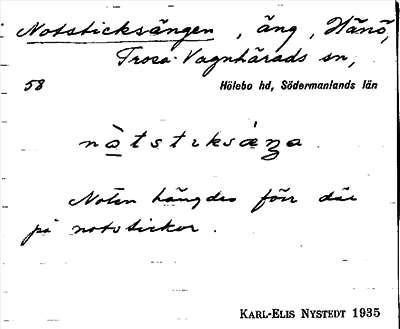 Notsticksängen, äng, Hånö,
Trosa-Vagnhärads sn,
58 Hölebo hd, Södermanlands län
nòtstıksáŋa
Noten hängdes förr där
på notstickor.
KARL-ELIS NYSTEDT 1935